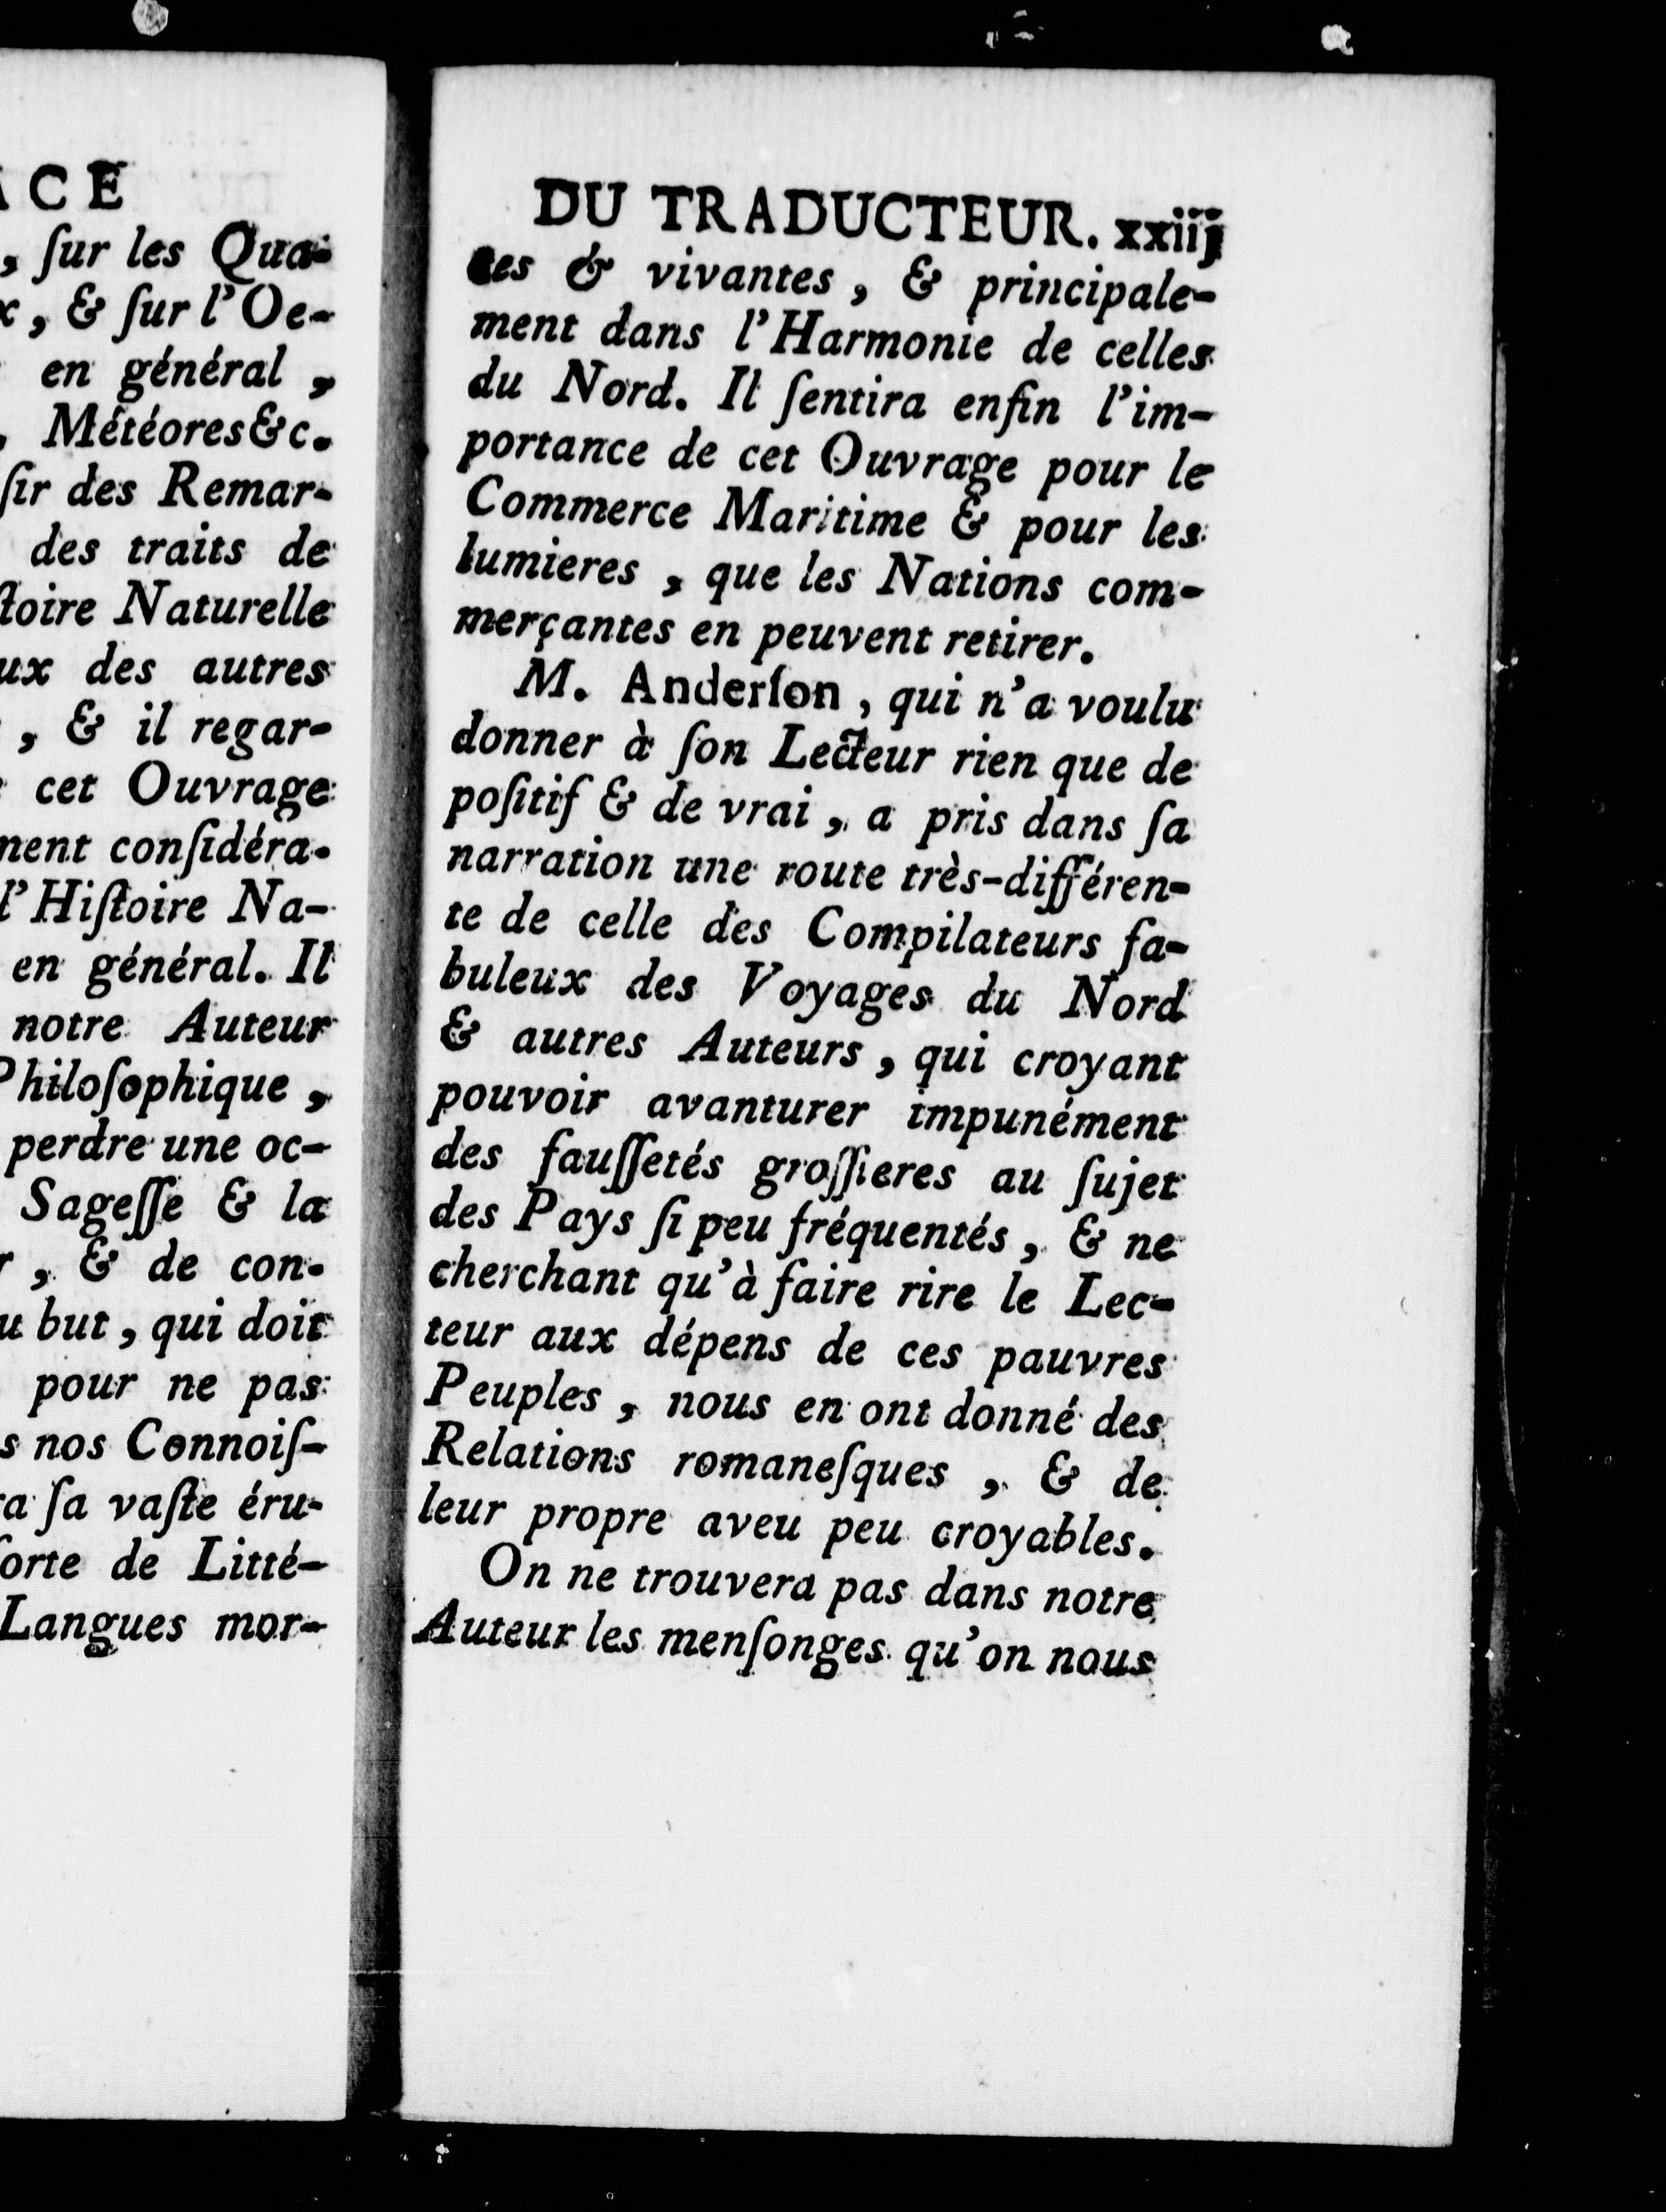 CE
, ſur les Qua-
, & ſur l'Oe-
en général,
, Météores&c.
ſir des Remar-
des traits de
ſtoire Naturelle
ux des autres
, & il regar-
cet Ouvrage
ment conſidéra-
l'Hiſtoire Na-
en général. Il
notre Auteur
Philoſophique,
perdre une oc-
Sageſſe & la
r, & de con-
u but, qui doit
pour ne pas
s nos Connoiſ-
ra ſa vaſte éru-
ſorte de Litté-
Langues mor-
DU TRADUCTEUR. xxiij
tes & vivantes, & principale-
ment dans l'Harmonie de celles
du Nord. Il ſentira enfin l'im-
portance de cet Ouvrage pour le
Commerce Maritime & pour les
lumieres, que les Nations com-
merçantes en peuvent retirer.
M. Anderſon, qui n'a voulu
donner à ſon Lecteur rien que de
poſitif & de vrai, a pris dans ſa
narration une route très-différen-
te de celle des Compilateurs fa-
buleux des Voyages du Nord
& autres Auteurs, qui croyant
pouvoir avanturer impunément
des fauſſetés groſſieres au ſujet
des Pays ſi peu fréquentés, & ne
cherchant qu'à faire rire le Lec-
teur aux dépens de ces pauvres
Peuples, nous en ont donné des
Relations romaneſques, & de
leur propre aveu peu croyables.
On ne trouvera pas dans notre
Auteur les menſonges qu'on nous